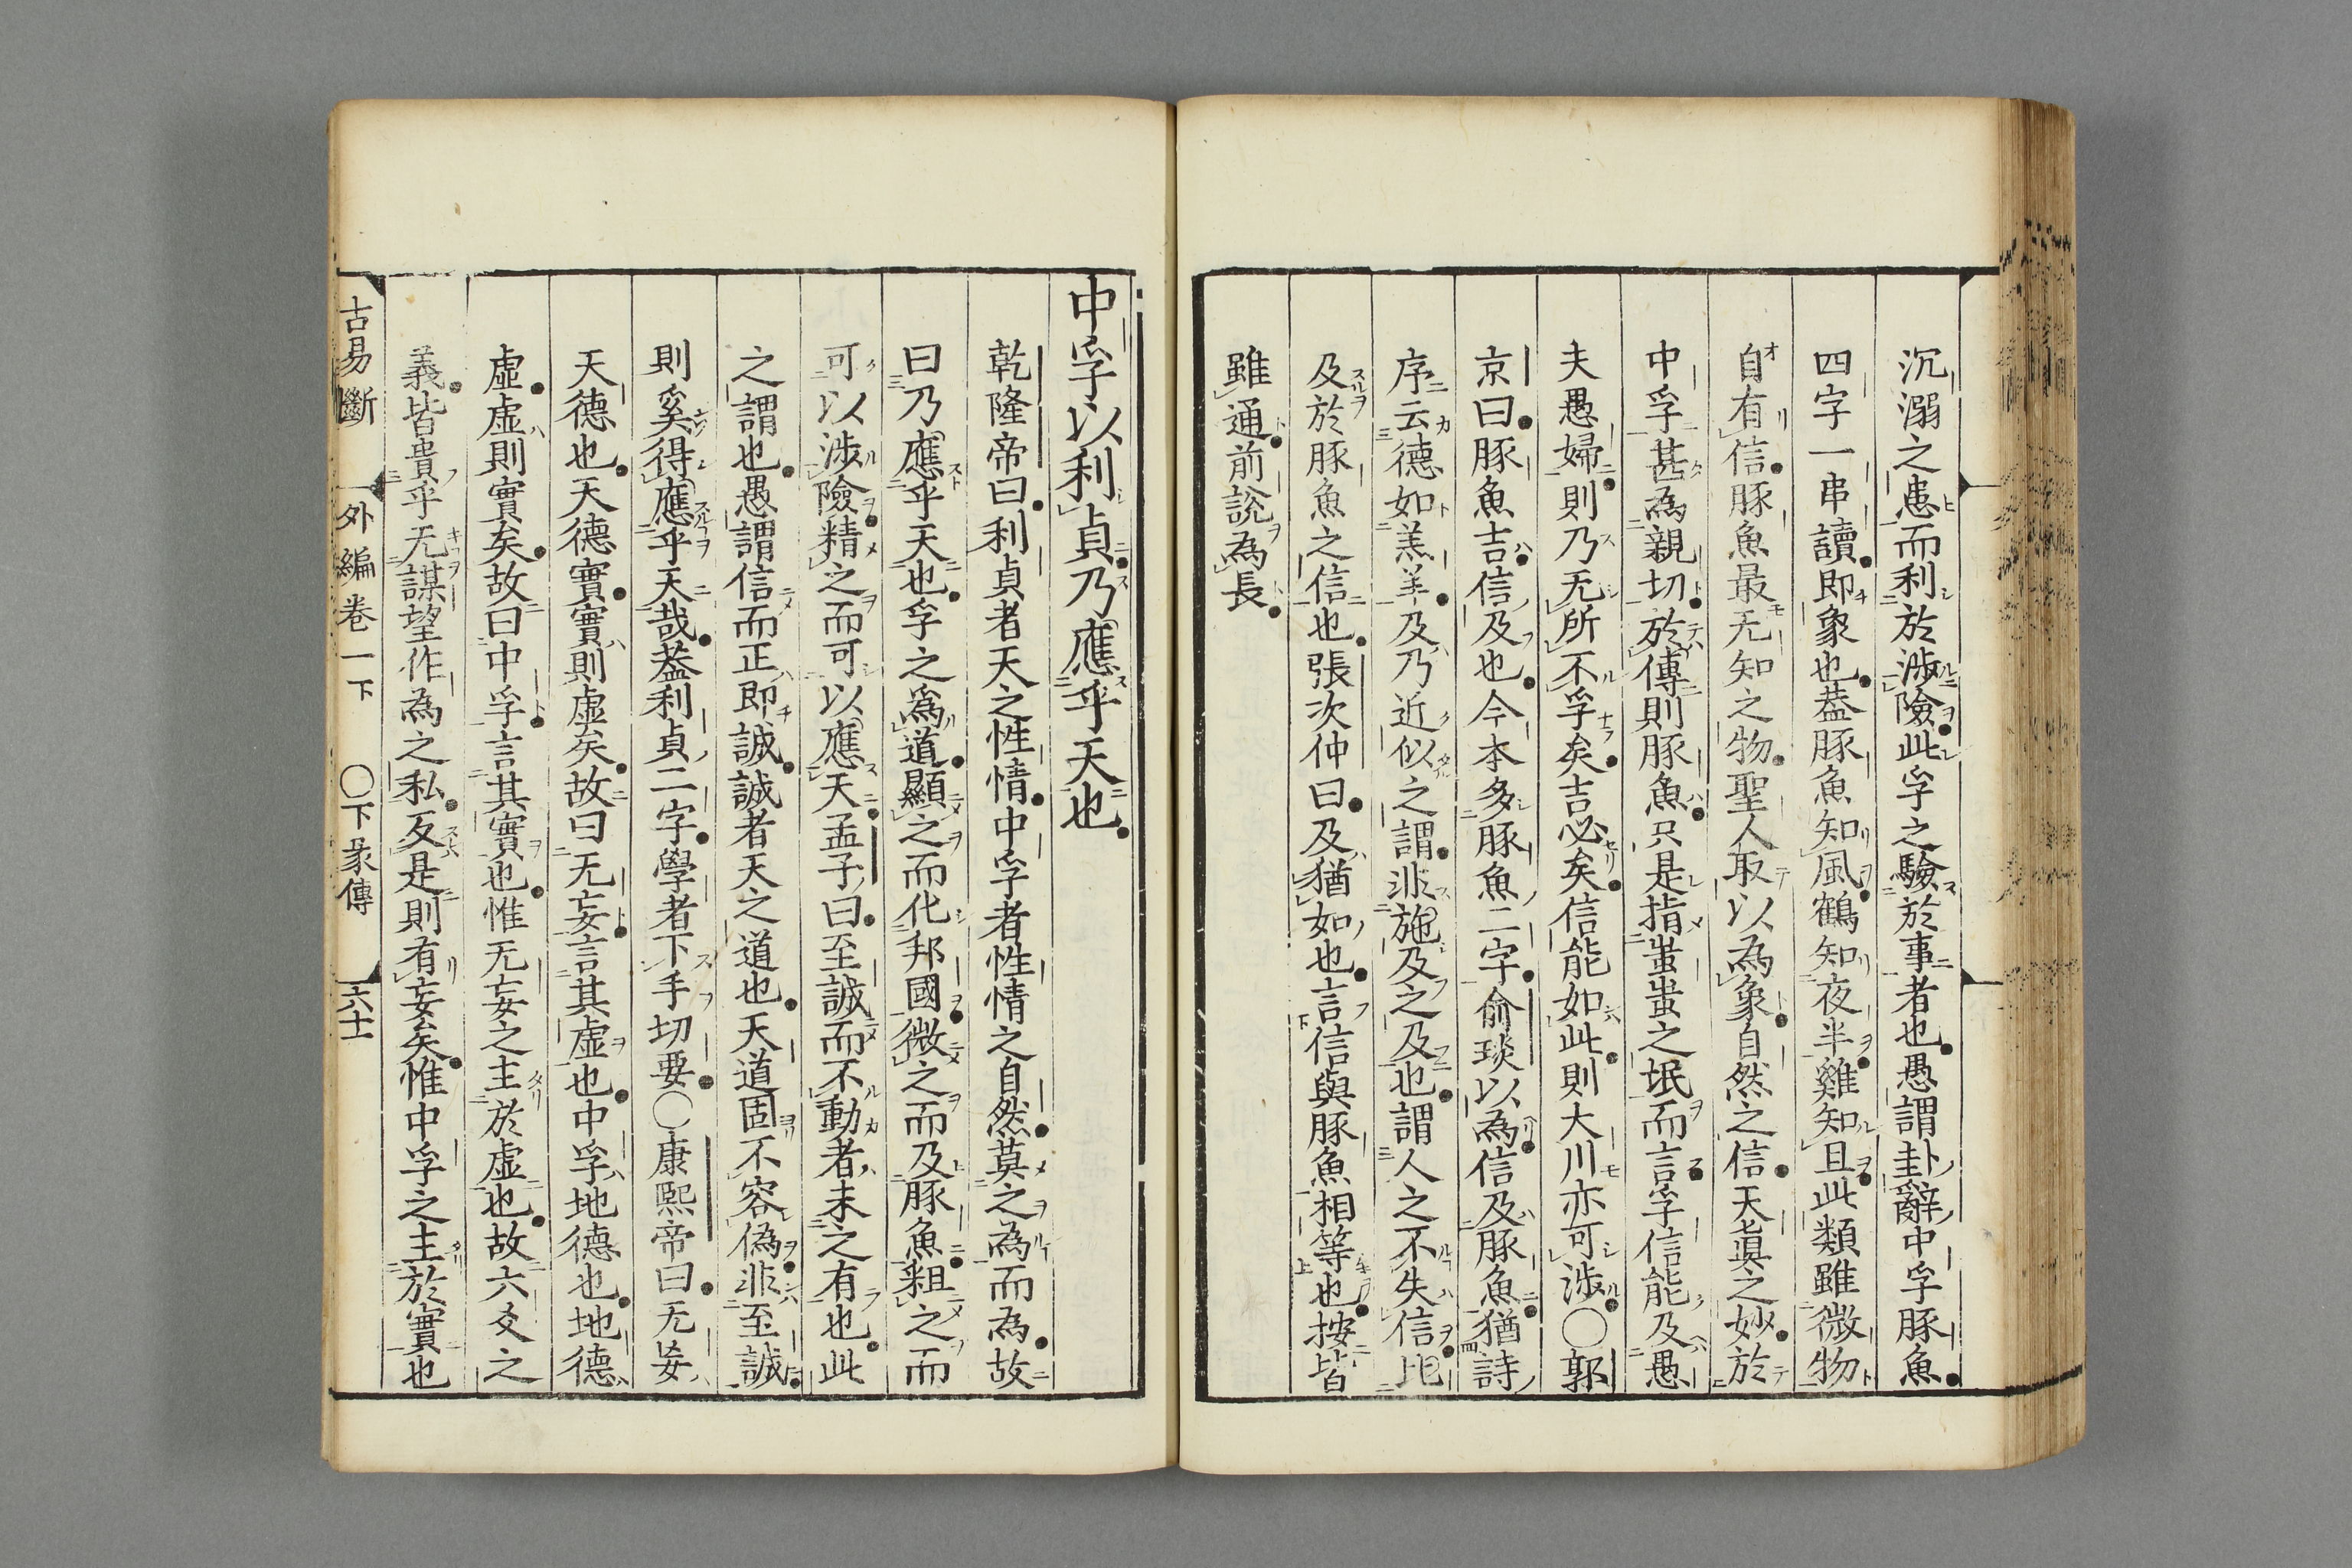 沉溺之患而利於渉險此孚之驗於事者也愚謂卦辭中孚豚魚
四字一串讀即象也葢豚魚知風鶴知夜半雞知旦此類雖微物
自有信豚魚最无知之物聖人取以為象自然之信天眞之妙於
中孚甚為親切於傳則豚魚只是指蚩蚩之氓而言孚信能及愚
夫愚婦則乃无所不孚矣吉必矣信能如此則大川亦可渉〇郭
京曰豚魚吉信及也今本多豚魚二字俞琰以為信及豚魚猶詩
序云德如羔羊及乃近似之謂非施及之及也謂人之不失信比
及於豚魚之信也張次仲曰及猶如也言信與豚魚相等也按皆
雖通前說為長
中孚以利貞乃應乎天也
乾隆帝曰利貞者天之性情中孚者性情之自然莫之為而為故
曰乃應乎天也孚之爲道顯之而化邦國微之而及豚魚粗之而
可以渉險精之而可以應天孟子曰至誠而不動者未之有也此
之謂也愚謂信而正即誠誠者天之道也天道固不容偽非至誠
則奚得應乎天哉葢利貞二字學者下手切要〇康熙帝曰无妄
天德也天德實實則虛矣故曰无妄言其虛也中孚地德也地德
虛虛則實矣故曰中孚言其實也惟无妄之主於虛也故六爻之
義皆貴乎无謀望作為之私反是則有妄矣惟中孚之主於實也
古易斷 外編卷一下 〇下彖傳 六十